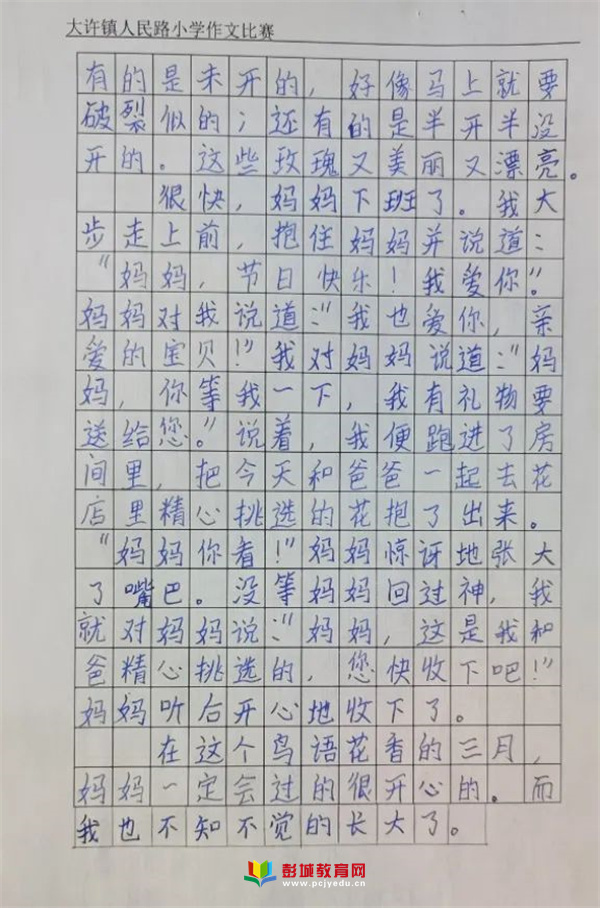 大许镇人民路小学作文比赛
有的是未开的，好像马上就要
破裂似的；还有的是半开半没
开的。这些玫瑰又美丽又漂亮。
很快，妈妈下班了。我大
步走上前，抱住妈妈并说道：
“妈妈，节日快乐！我爱你。”
妈妈对我说道：“我也爱你，亲
爱的宝贝！”我对妈妈说道：“妈
妈，你等我一下，我有礼物要
送给您。”说着，我便跑进了房
间里，把今天和爸爸一起去花
店里精心挑选的花抱了出来。
“妈妈你看！”妈妈惊讶地张大
了嘴巴。没等妈妈回过神，我
就对妈妈说：“妈妈，这是我和
爸精心挑选的，您快收下吧！”
妈妈听后开心地收下了。
在这个鸟语花香的三月，
妈妈一定会过的很开心的。而
我也不知不觉的长大了。
彭城教育网
www.pcjyedu.cn